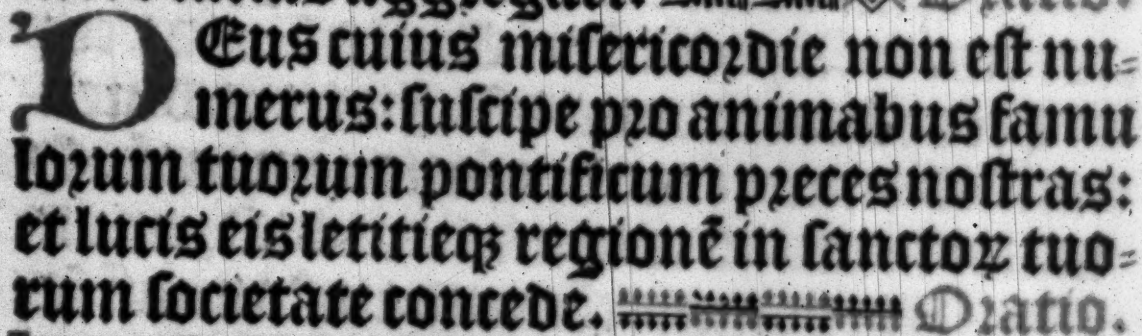 DEus cuius miſericoꝛdie non eſt nu⸗
merus: ſuſcipe pꝛo animabus famu
loꝛum tuoꝛum pontificum pꝛeces noſtras:
et lucis eis letitieqꝫ regionē in ſanctoꝝ tuo⸗
rum ſocietate concede. Oratio.